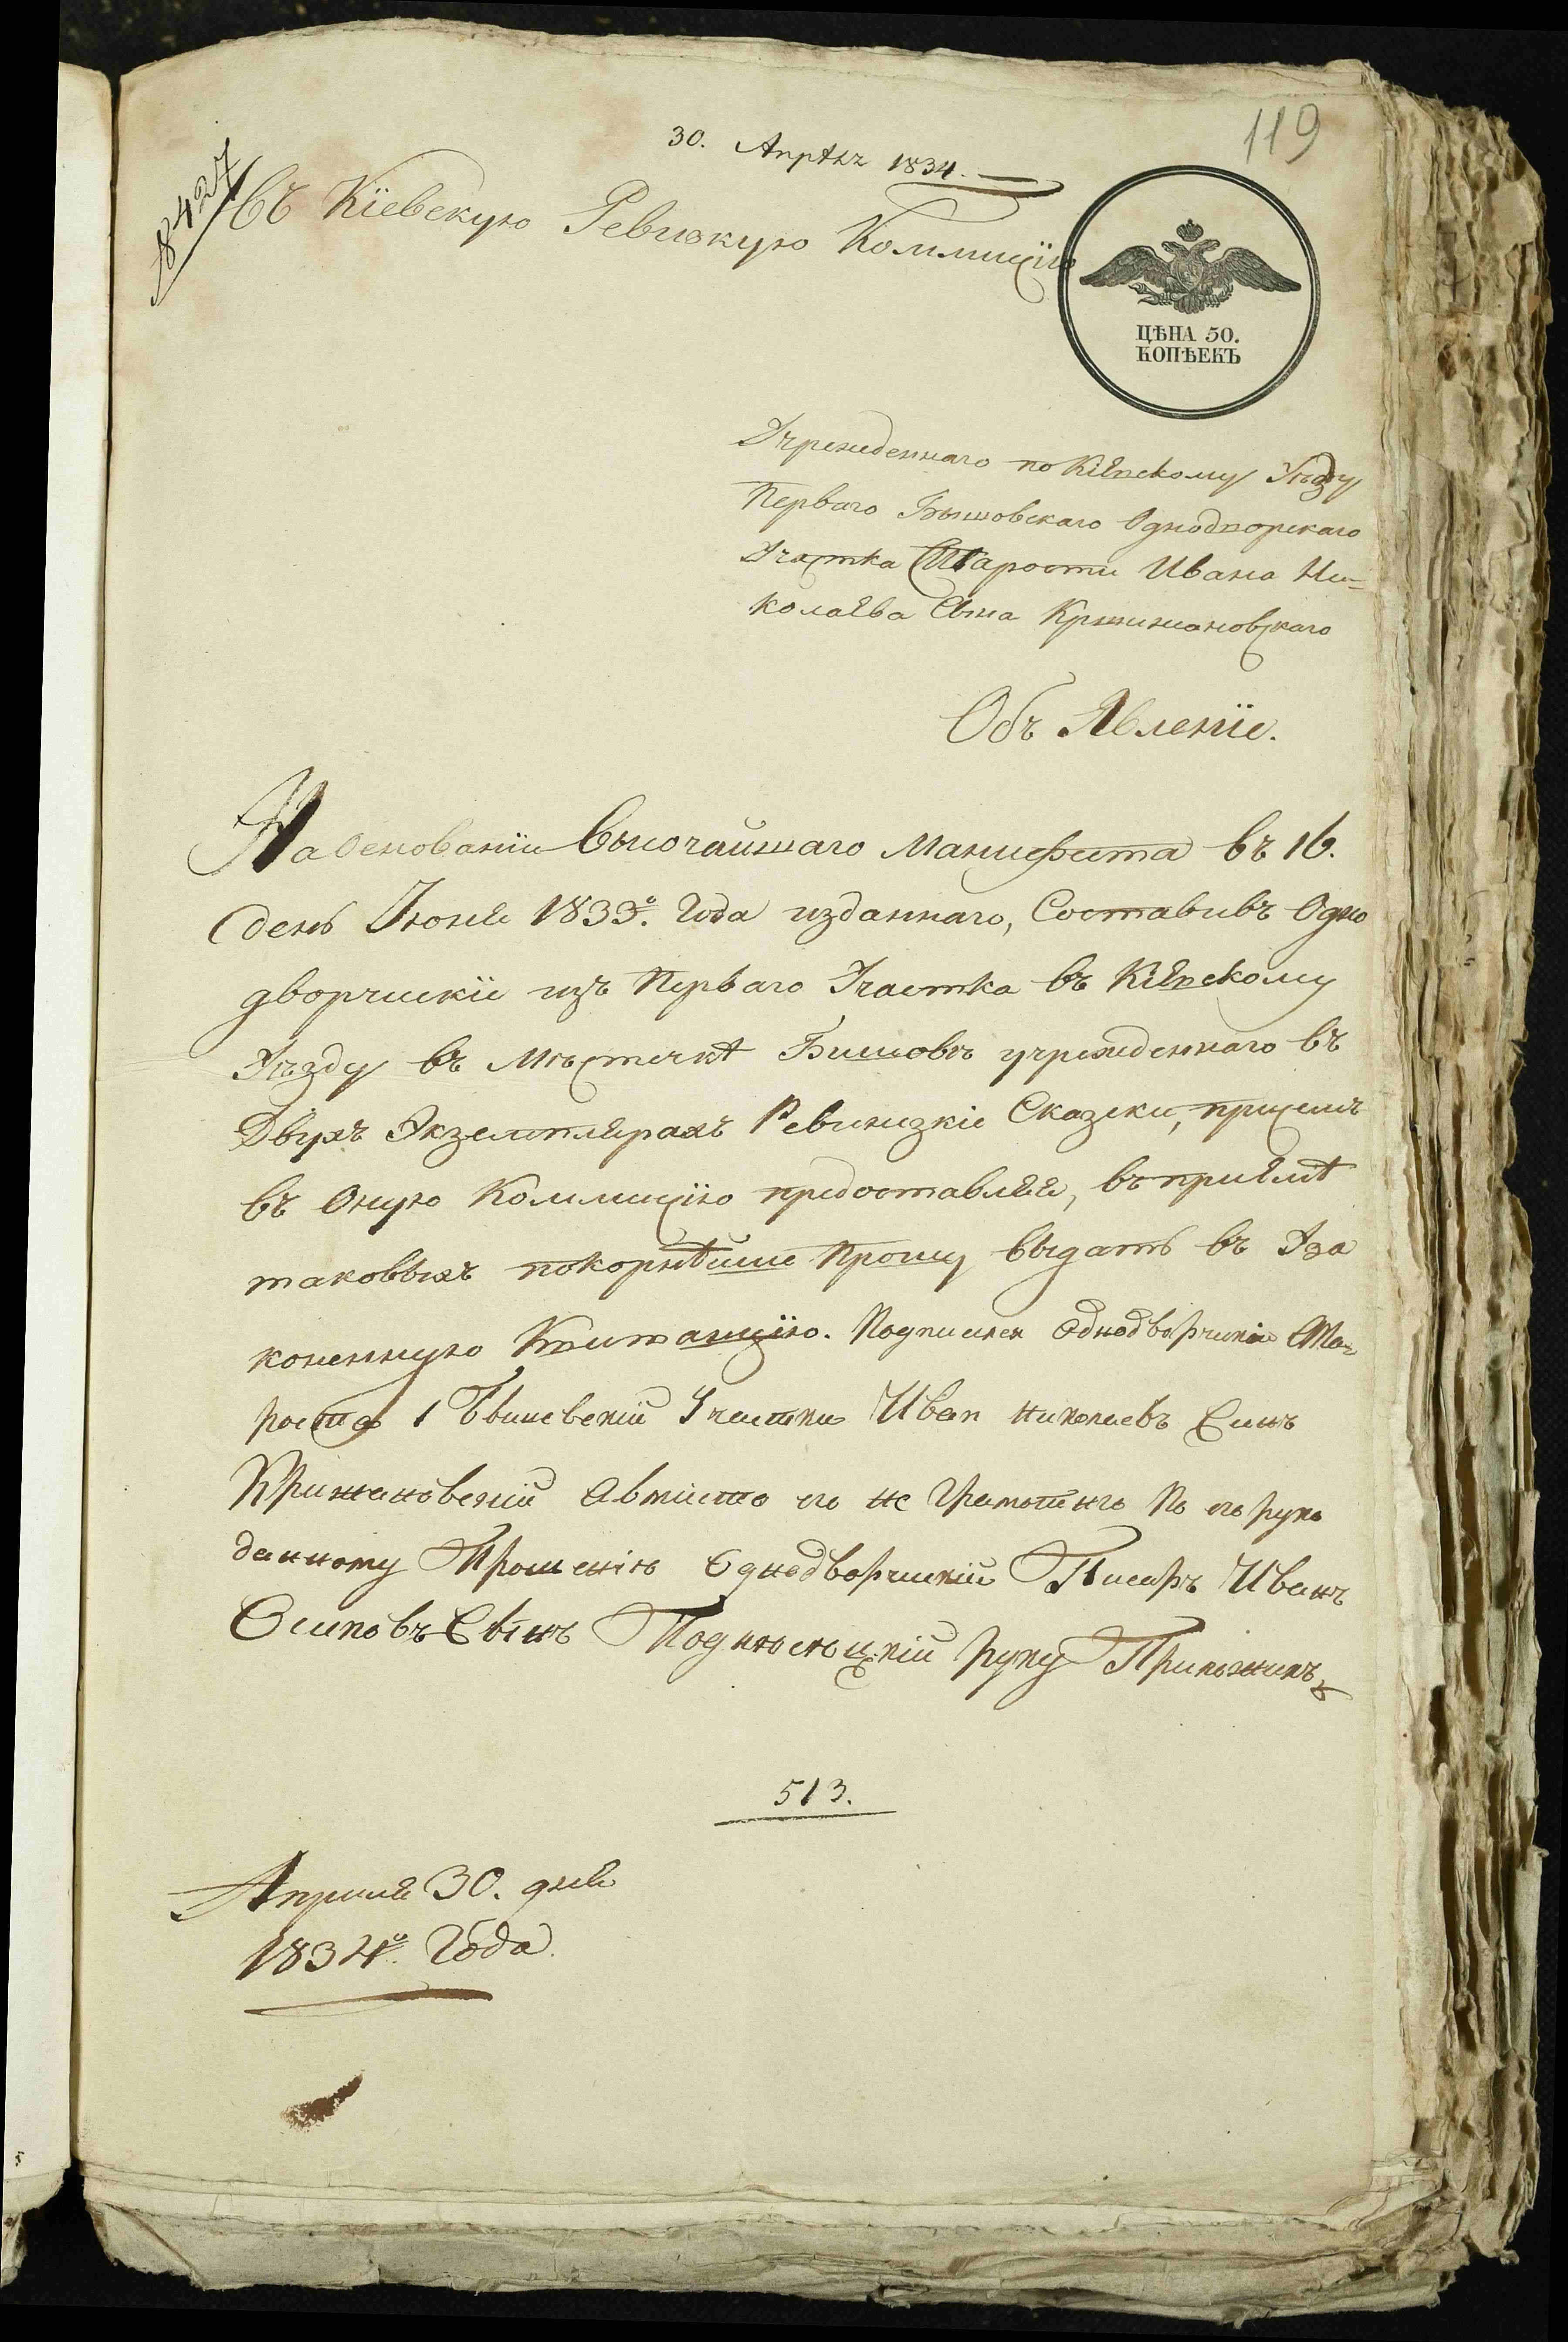 119
30. Апрѣля 1834.
18427
Въ Кіевскую Ревизкую Коммисію
ЦѢНА 50.
КОПѢЕКЪ
Учрежденнаго по Кіевскому Уѣзду
Перваго Бышовскаго Однодворскаго
Участка Старости Ивана Ни-
колаева Сына Кржижановскаго
Объ Явленіе.
На Основаніи Высочайшаго Манифеста въ 16.
день Іюня 1833го. Года изданнаго, Составивъ Одно
дворческіе изъ Перваго Участка въ Кіевскому
Уѣзду въ Мѣстечкѣ Бишовѣ учрежденнаго въ
Двухъ Экземплярахъ Ревизкіе Сказски, при семъ
въ Оную Коммисію предоставляя, въ пріемѣ
таковыхъ покорнѣйше Прошу выдать въ Уза
коненную Квитанцію. Подписалея Однодворчикій Ста-
роста 1 Бышевскій Участка Иван Николаевъ Синъ
Крижановскій Авмісто его не Грамотнго По его руко
данному Прошенію Однодворчикій Писаръ Иванъ
Осиповъ Сынъ руку Приложилъ
513.
Априля 30. дня
1834го. Года.